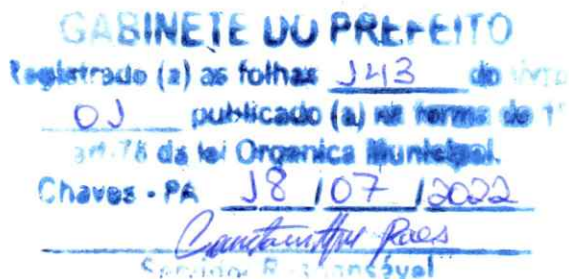 GABINETE DO PREFEITO
Registrado (a) as folhas 143 do livro
01 publicado (a) na forma do 1º
art. 78 da lei Organica Municipal.
Chaves - PA 18 / 07 / 2022
Paes
Servidor Responsável